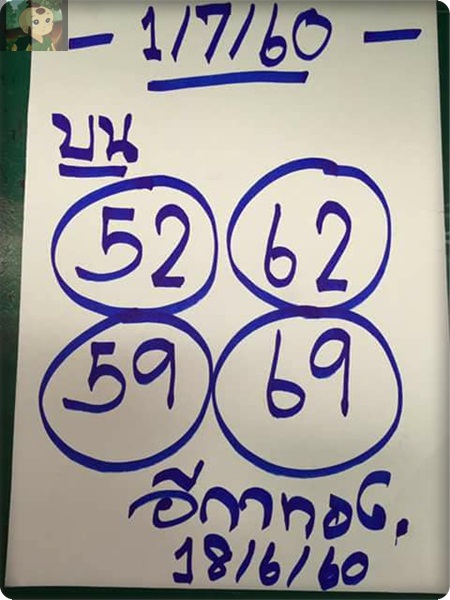 - 1/7/60 -
บน
52 62
59 69
อีกาทอง.
18/6/60